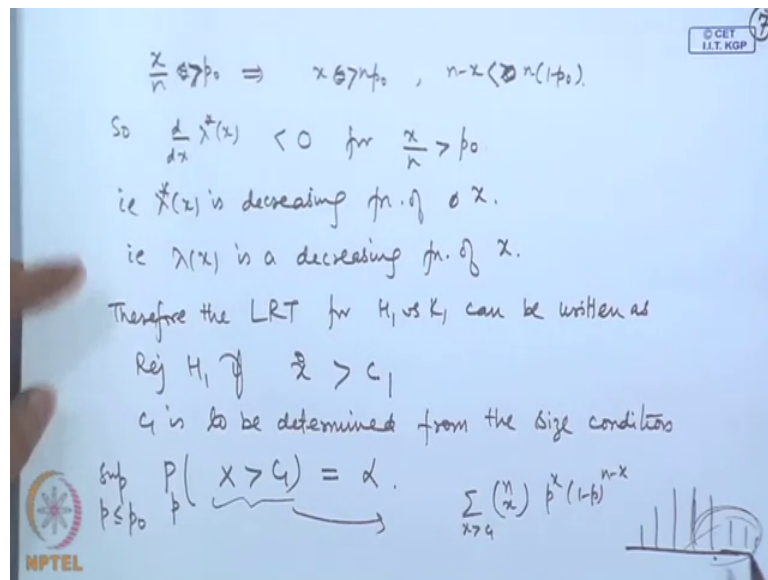 7
© CET
I.I.T. KGP
x/n > p₀ ⇒ x > np₀ , n-x < n(1-p₀).
So d/dx λ*(x) < 0 for x/n > p₀
ie λ*(x) is decreasing fn. of x.
ie λ(x) is a decreasing fn. of x.
Therefore the LRT for H₁ vs K₁ can be written as
Rej H₁ if x > c₁
c₁ is to be determined from the size condition
sup p≤p₀ P_p( X > c₁) = α. ∑ x>c₁ (n x) p^x (1-p)^{n-x}
NPTEL